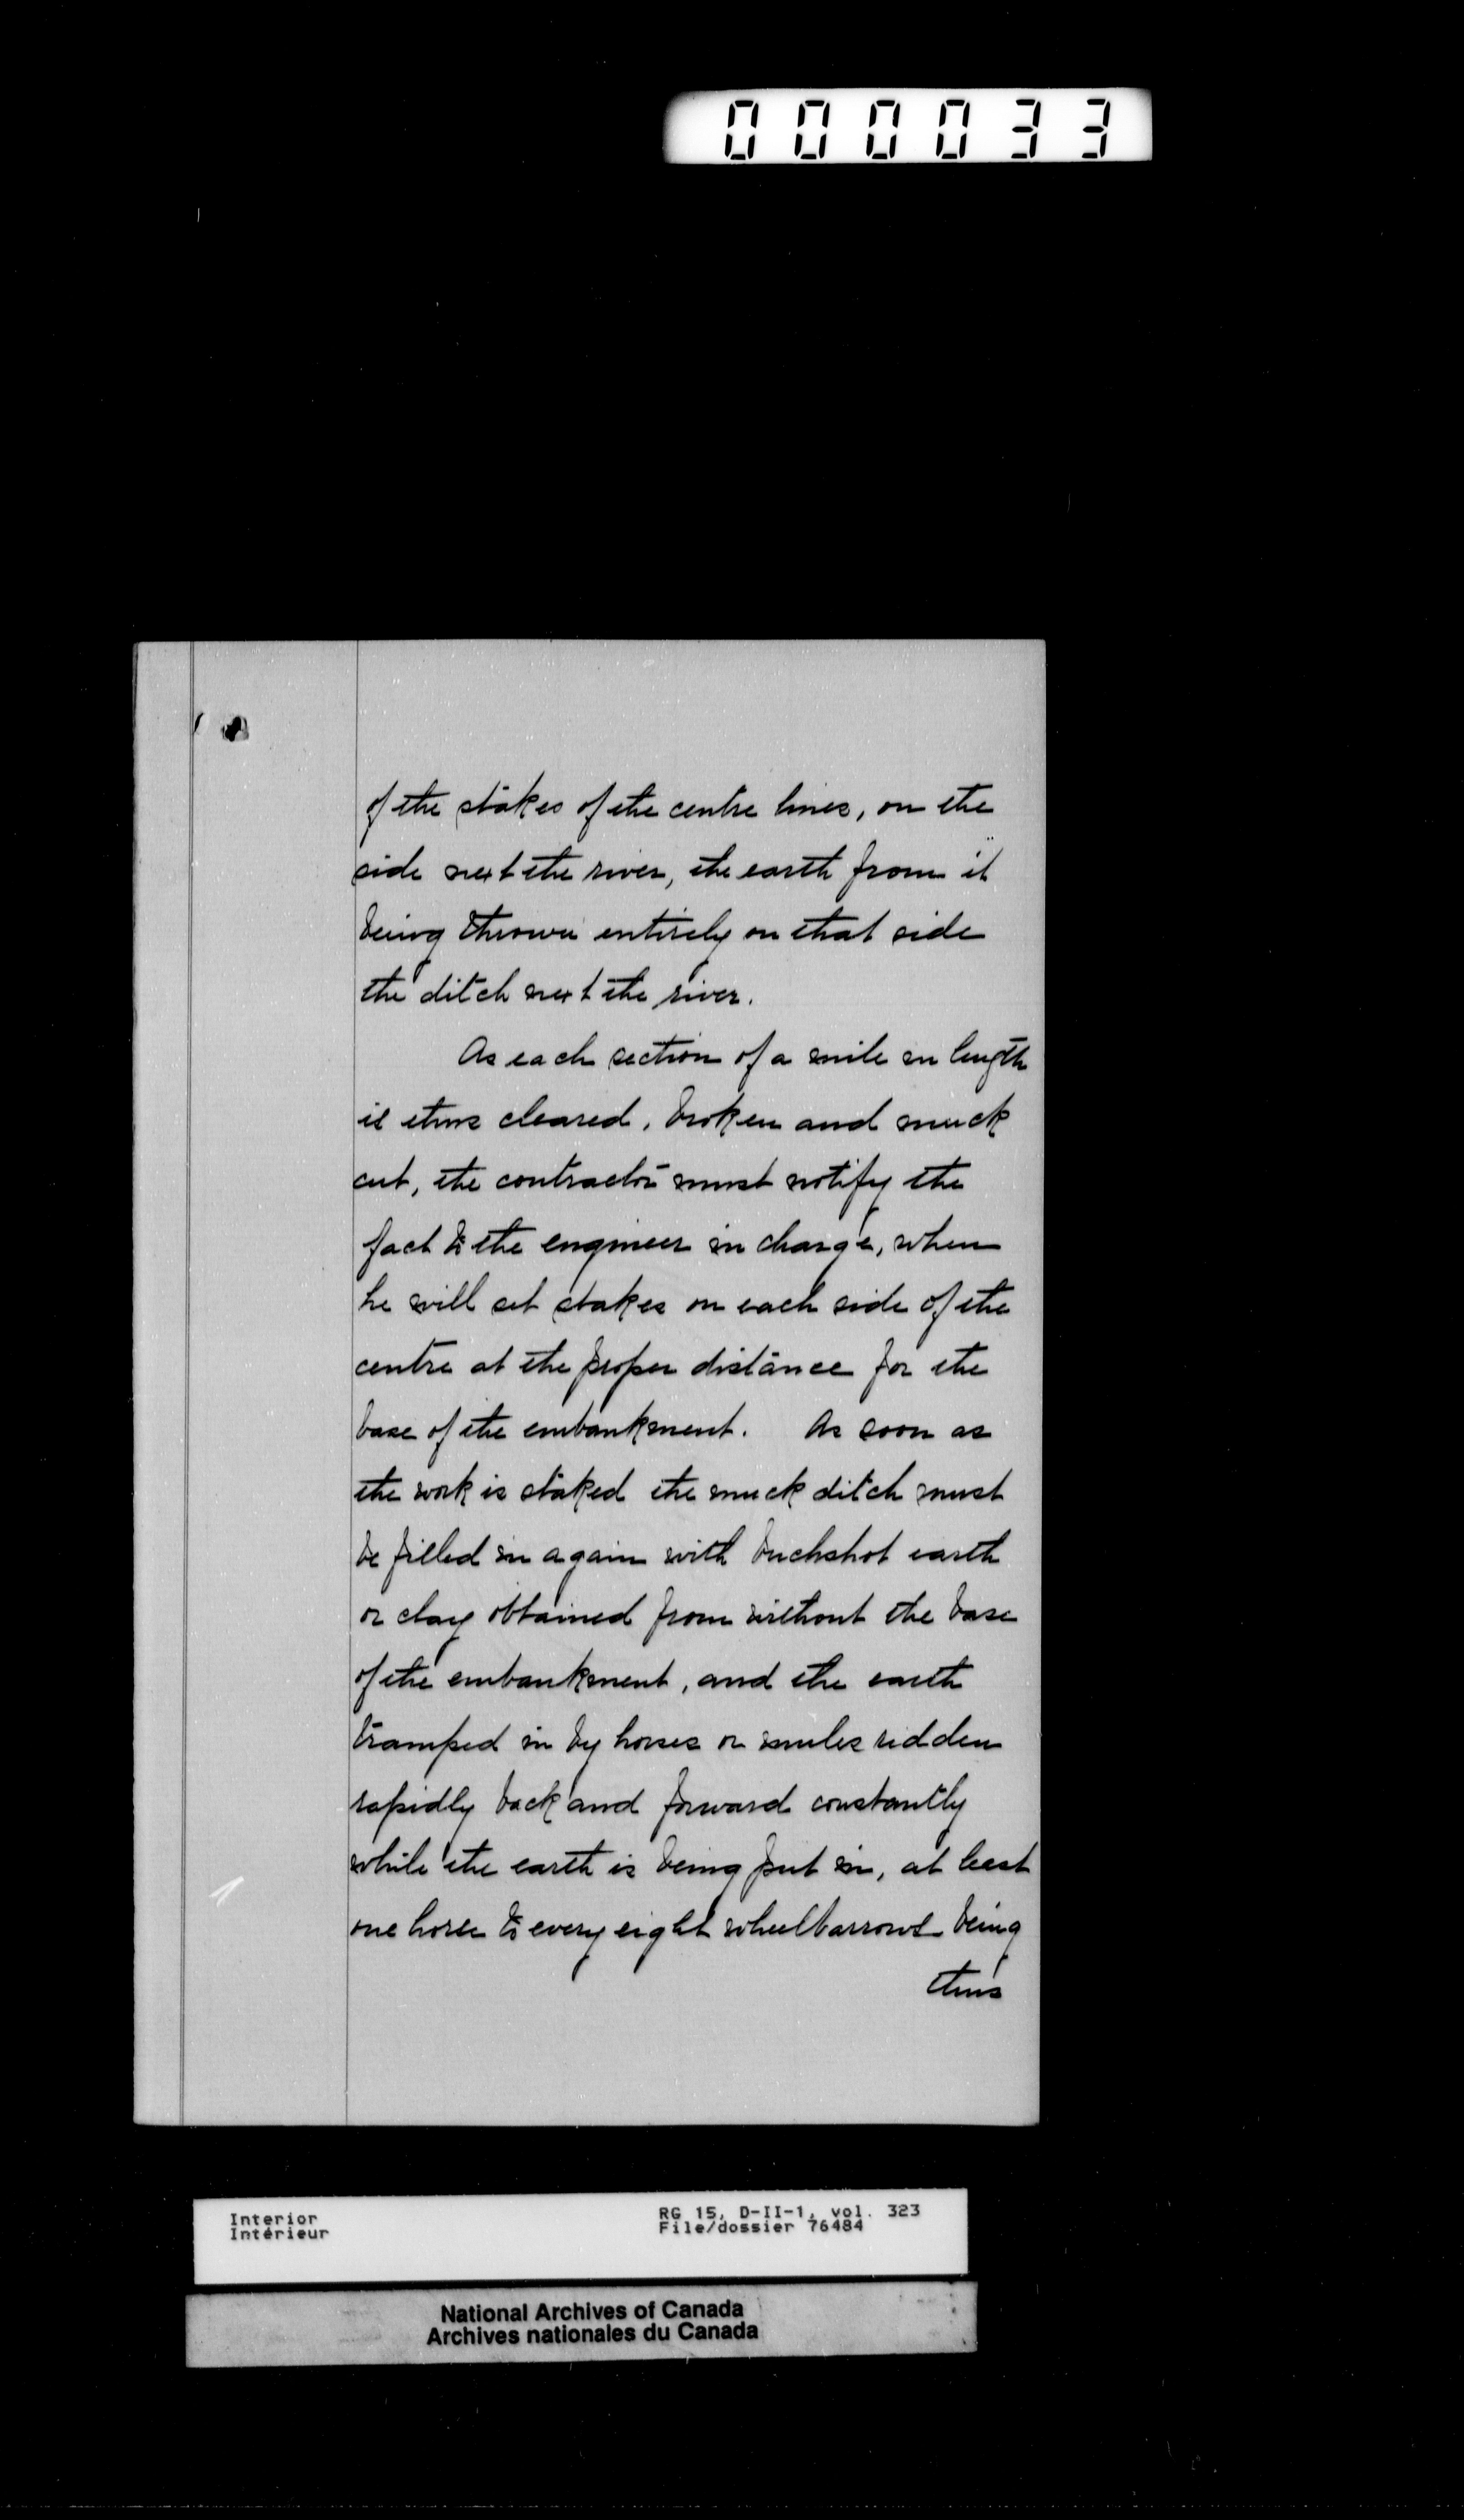 000033
of the stakes of the centre lines, on the
side next the river, the earth from it
being thrown entirely on that side
the ditch next the river.
As each section of a mile in length
is thus cleared, broken and muck
cut, the contractor must notify the
fact to the engineer in charge, when
he will set stakes on each side of the
centre at the proper distance for the
base of the embankment. As soon as
the work is staked the muck ditch must
be filled in again with buckshot earth
or clay obtained from without the base
of the embankment, and the earth
tramped in by horses or mules ridden
rapidly back and forward constantly
while the earth is being put in, at least
one horse to every eight wheelbarrows being
thus
Interior
Intérieur
RG 15, D-II-1, vol. 323
File/dossier 76484
National Archives of Canada
Archives nationales du Canada